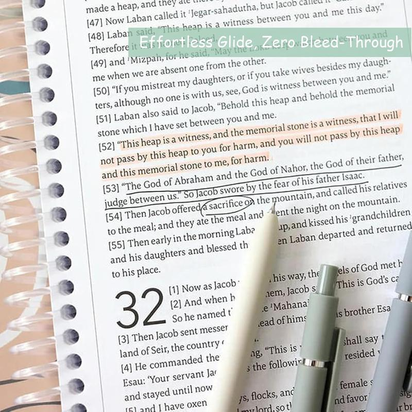 made a heap, and they ate there
[47] Now Laban called it 'Jegar-sahadutha, but Jacob called it
[48] Laban said, "This heap is a witness between you and me this day."
Effortless Glide, Zero Bleed-Through
Therefore it
[49] and 'Mizpah, for he said, "May the
me when we are absent one from the other.
[50] "If you mistreat my daughters, or if you take wives besides my daugh-
ters, although no one is with us, see, God is witness between you and me."
[51] Laban also said to Jacob, "Behold this heap and behold the memorial
stone which I have set between you and me.
[52] "This heap is a witness, and the memorial stone is a witness, that I will
not pass by this heap to you for harm, and you will not pass by this heap
and this memorial stone to me, for harm.
[53] "The God of Abraham and the God of Nahor, the God of their father,
judge between us." So Jacob swore by the fear of his father Isaac.
[54] Then Jacob offered a sacrifice on the mountain, and called his relatives
to the meal; and they ate the meal and spent the night on the mountain.
[55] Then early in the morning Laban up, and kissed his 'grandchildren
and his daughters and blessed Laban departed and returned
to his place.
32 [1] Now as Jacob his way, the God met
[2] And when Jacob This is God's
So he named 'Mahana
[3] Then Jacob sent of him brother Esau
land of Seir, the country
[4] He commanded them "This is shall say
Esau: 'Your servant resided
and stayed until now
[5] and I have oxen flocks, and female
lord, favor